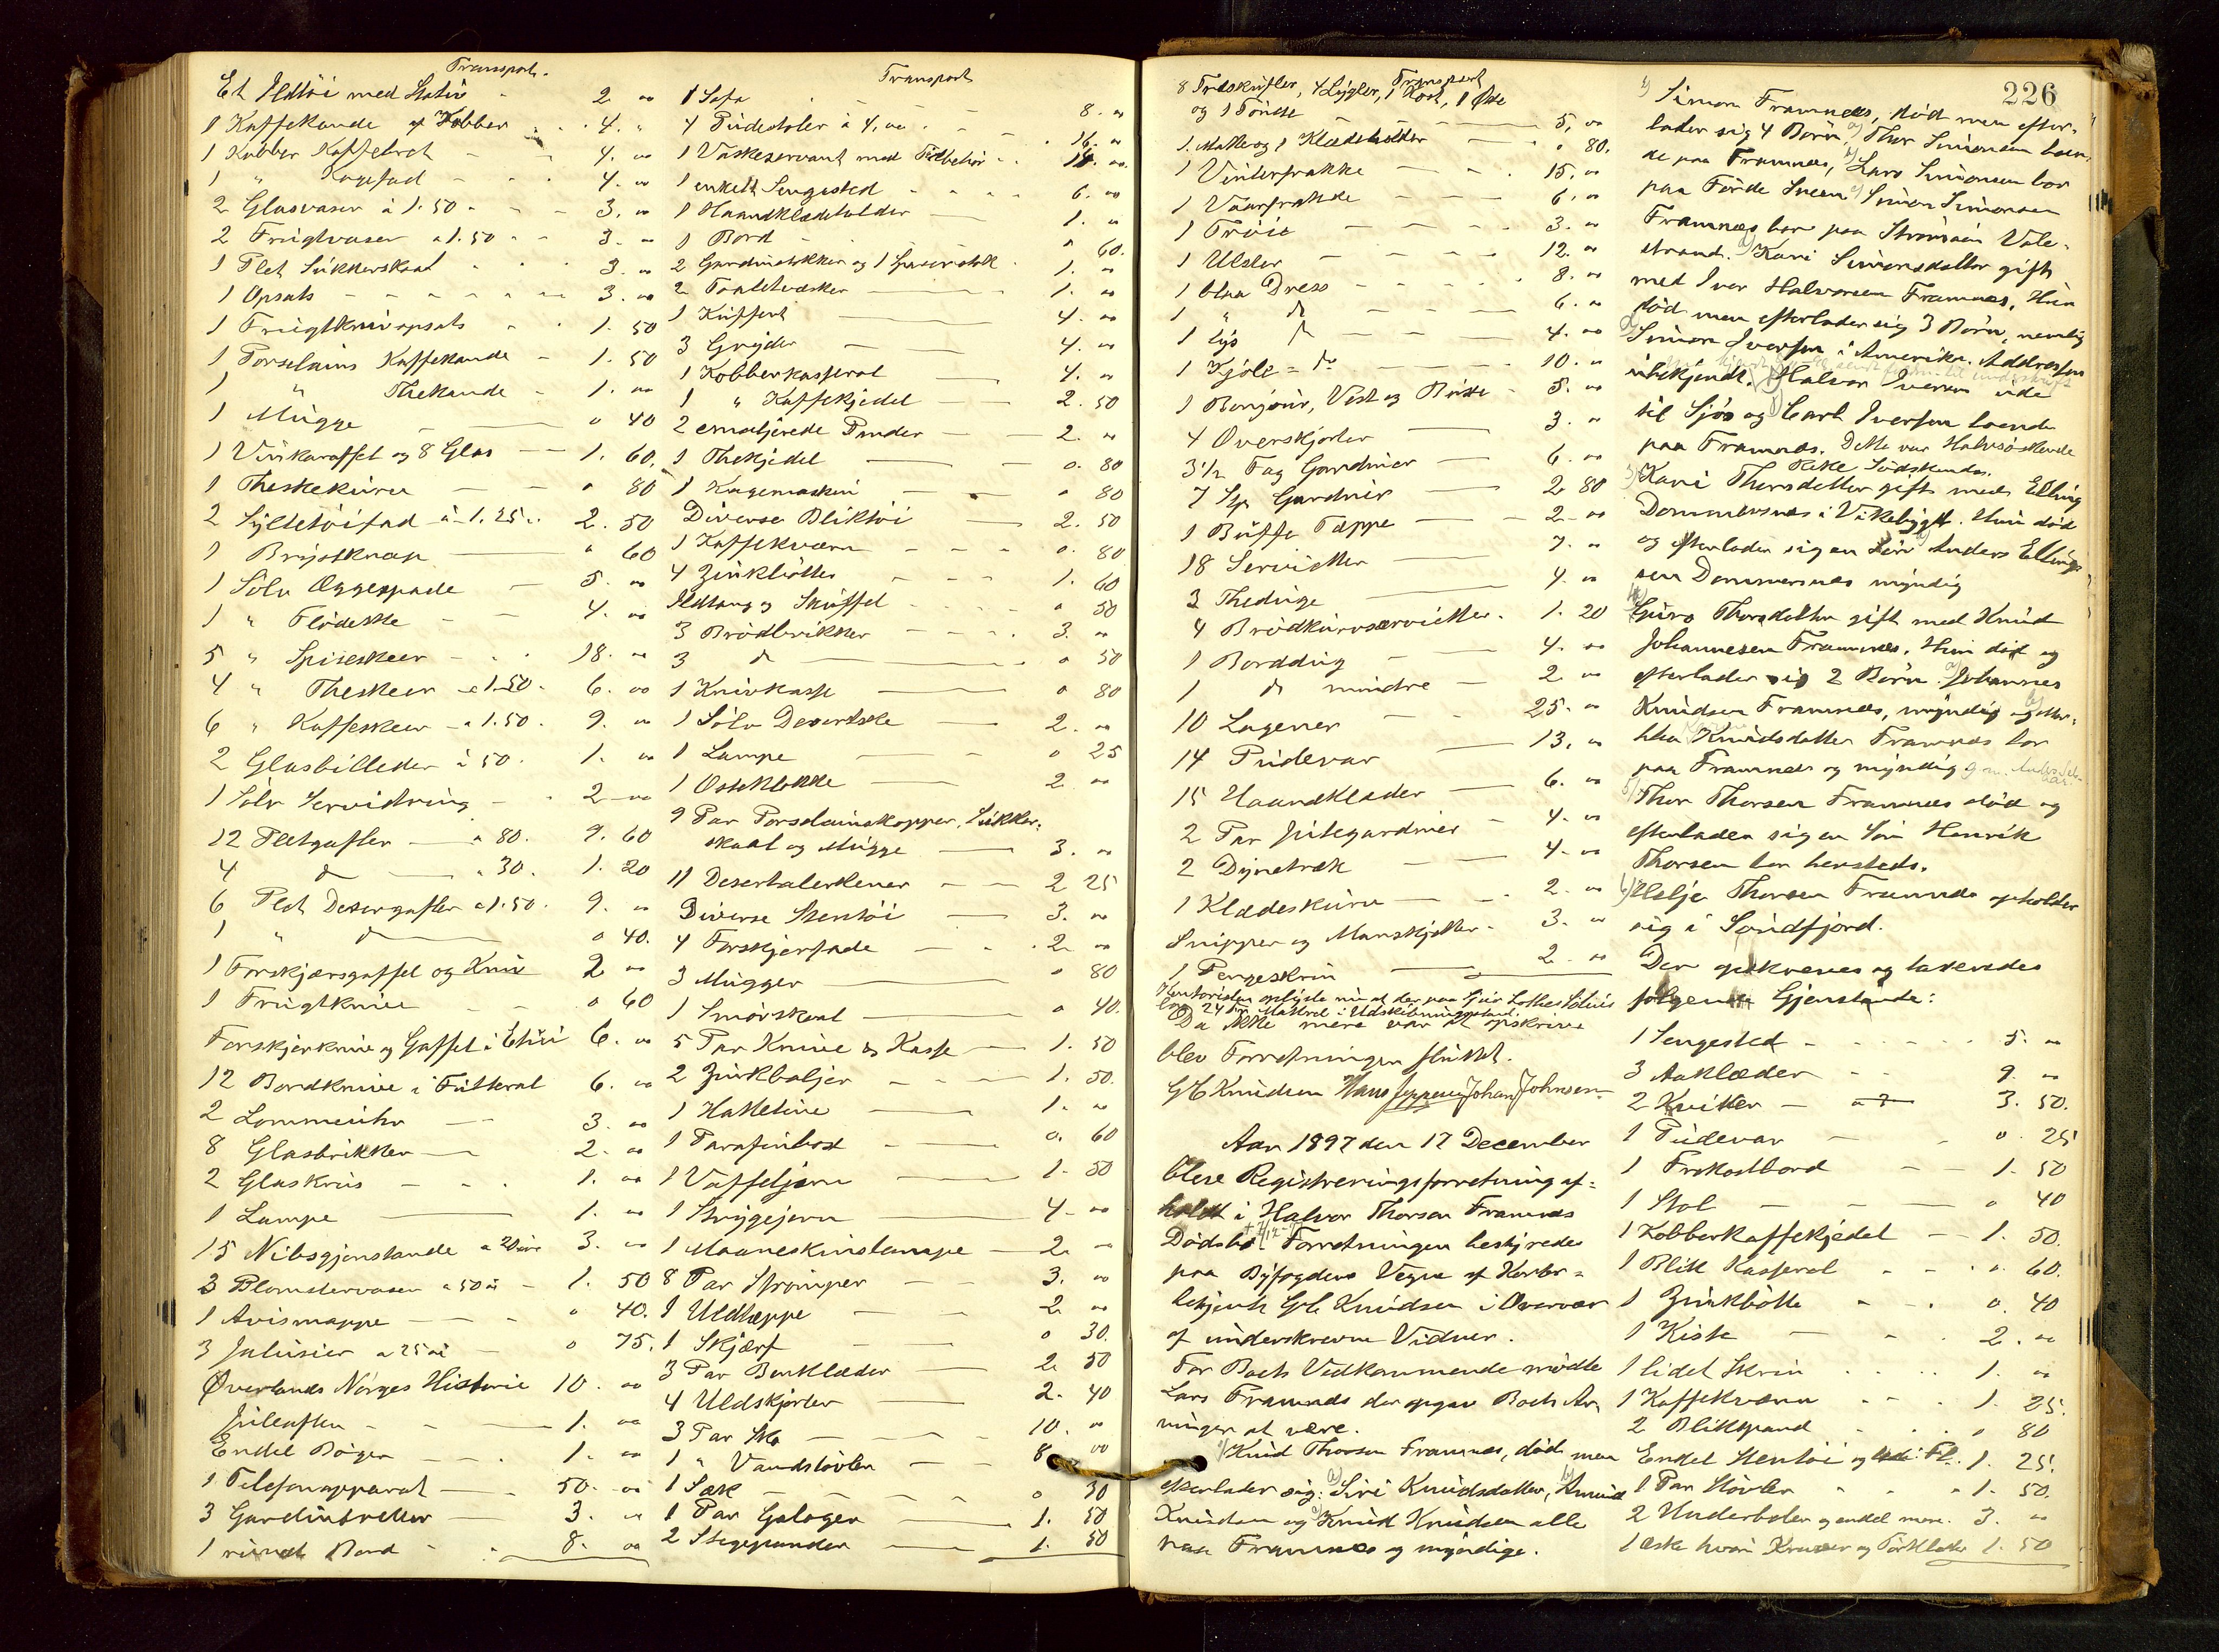 Transport.
Et Ildtöi med Stativ - 2 "
1 Kaffekande af Kobber - 4. "
1 Kobber Kaffebret - 4. "
1 " Kagefad - 4. "
2 Glasvaser à 1.50 - 3. "
2 Frugtvaser à 1.50 - 3. "
1 Plet Sukkerskaal - 3. "
1 Opsats - 3. "
1 Frugtknivopsats - 1. 50
1 Porselains Kaffekande - 1. 50
1 " Thekande - 1. "
1 Mugge - " 40
1 Vinkaraffel og 8 Glas - 1. 60.
1 Theskekurv - " 80
2 Syltetöifad à 1.25 - 2. 50
1 Brystknap - " 60
1 Sölv Æggespade - 5. "
1 " Flödeske - 4. "
5 " Spiseskeer - 18. "
4 " Theskeer à 1.50 - 6. "
6 " Kaffeskeer à 1.50. 9. "
2 Glasbilleder à 50. 1. "
1 Sölv Serviëtring - 2 "
12 Pletgafler - à 80. 9. 60
4 do - à 30. 1. 20
6 Plet Desergafler à 1.50. 9. "
1 " do - " 40.
1 Forskjærsgaffel og Kniv 2 "
1 Frugtkniv - " 60
Forskjærkniv og Gaffel i Etui 6. "
12 Bordknive i Futteral 6. "
2 Lommeuhr - 3. "
8 Glasbrikker - 2. "
2 Glaskrus - 1. "
1 Lampe - 1. "
15 Nibsgjenstande à 20 öre 3. "
3 Blomstervaser à 50 ö - 1. 50
1 Avismappe - " 40.
3 Jalusier à 25 ö - " 75.
Øverlands Norges Historie 10. "
Juleaften - 1. "
Endel Böger - 1. "
1 Telefonapparat - 50. "
3 Gardinbretter - 3. "
1 rundt Bord - 8. "
Transport
1 Sofa - 8. "
4 Pudestoler à 4, " - 16. "
1 Vaskeservant med Tilbehör - 14. "
1 enkelt Sengested - 6. "
1 Haandklædeholder - 1. "
1 Bord - " 60.
2 Gardinstokker og 1 - 1. "
2 Toaletvæsker - 1. "
1 Kuffert - 4. "
3 Gryder - 4. "
1 Kobberkasserol - 4. "
1 " Kaffekjedel - 2. 50
2 emaljerede Pander - 2. "
1 Thekjedel - 0. 80
1 Kagemaskin - " 80
Diverse Bliktöi - 2. 50
1 Kaffekværn - 0. 80
4 Zinkbötter - 1. 60
Ildtang og Skuffel - " 50
3 Brödbrikker - 3. "
3 do - " 50
1 Knivkasse - " 80
1 Sölv Desertske - 2. "
1 Lampe - " 25
1 Osteklokke - 2 "
9 Par Porselainskopper, Sukker-
skaal og Mugge - 3. "
11 Deserttalerkener - 2 25
Diverse Stentöi - 3. "
4 Forskjerfade - 2 "
3 Mugger - " 80
1 Smörskaal - " 40.
5 Par Knive og Kasse - 1. 50
2 Zinkbaljer - 1. 50.
1 Halletine - 1. "
1 Parafinbox - 0. 60
1 Vaffeljern - 1. 50
1 Strygejern - 4. "
1 Maaneskinslampe - 2. "
8 Par Strömper - 3. "
1 Uldtæppe - 2. "
1 Skjærf - 0 30.
3 Par Benklæder - 2. 50
4 Uldskjorter - 2. 40
3 Par Sko - 10. "
1 " Vandstövler - 8 "
1 Sæk - 0 30
1 Par Galoger - 1. 50
2 Stegepander - 1. 50
Transport
8 Træskufler, 4 Lygter, 1 Kost, 1 Øse
og 1 Tönde - 5. "
1 Matte og 1 Klædeholder - " 80.
1 Vinterfrakke - 15. "
1 Vaarfrakke - 6. "
1 Tröie - 3. "
1 Ulster - 12. "
1 blaa Dress - 8. "
1 " do - 6. "
1 lys do - 4. "
1 Kjole = do - 10. "
1 Bonjour, Vest og Buxe - 5. "
4 Overskjorter - 3. "
3 1/2 Fag Gardiner - 6. "
7 Stk Gardiner - 2 80
1 Buffe Tæppe - 2 "
18 Servietter - 7. "
3 Theduge - 4. "
4 Brödkurvservietter. 1. 20
1 Borddug - 4. "
1 do mindre - 2. "
10 Lagener - 25. "
14 Pudevar - 13. "
15 Haandklæder - 6. "
2 Par Jutegardiner - 4. "
2 Dynetræk - 4. "
1 Klædeskurv - 2. "
Snipper og Manskjetter. 3. "
1 Pengeskrin - 2. "
Kontoristen oplyste nu at der paa Sjur Lothes Sölvis
Da ikke mere var at opskrive
blev Forretningen sluttet.
G C Knudsen Hans Jeppesen Johan Johnsen.
Aar 1897 den 17 December
blev Registreringsforretning af-
holdt i Halvor Thorsen Framnæs
Dödsbo + 2/12-97 Forretningen bestyredes
paa Byfogdens Vegne af Kontor-
betjent G C Knudsen i Overvær
af underskrevne Vidner.
For Boets Vedkommende mödte
Lars Framnæs der opgav Boets Ar-
vinger at være.
1) Knud Thorsen Framnæs, död men
efterlader sig: a) Siri Knudsdatter, b) Amund
Knudsen og c) Knud Knudsen alle
paa Framnæs og myndige.
226
2) Simon Framnæs, död men efter-
lader sig 4 Börn, a) Thor Simonsen boen-
de paa Framnæs, b) Lars Simonsen bor
paa Förde Sveen c) Simon Simonsen
Framnæs bor paa Strömöen Vale-
strand. d) Kari Simonsdatter gift
med Iver Halvorsen Framnæs, Hun
död men efterlader sig 3 Börn, nemlig
a) Simon Iversen i Amerika. Addressen
ubekjendt. b) Halvor Iversen ude
til Sjös og c) Carl Iversen boende
paa Framnæs. Dette var Halvsöskende
Rette Södskende.
3) Kari Thorsdatter gift med Elling
Dommersnes i Vikebygd. Hun död
og efterlader sig en Sön a) Anders Elling-
sen Dommersnes myndig
4) Guro Thorsdatter gift med Knud
Johannesen Framnæs. Hun död og
efterlader sig 2 Börn. a) Johannes
Knudsen Framnæs, myndig og b)
Knudsdatter Framnæs bor
paa Framnæs og myndig
5) Thor Thorsen Framnæs död og
efterlader sig en Sön Henrik
Thorsen bor hersteds.
6) Helje Thorsen Framnæs opholder
sig i Söndfjord.
Der opskreves og taxeredes
fölgende Gjenstande:
1 Sengested - 5. "
3 Aaklæder - 9. "
2 Kvitler - 3. 50.
1 Pudevar - 0. 25
1 Frokostbord - 1. 50
1 Stol - " 40
1 Kobberkaffekjedel - 1. 50.
1 Blik Kasserol - 0. 60.
1 Zinkbötte - 0. 40
1 Kiste - 2. "
1 lidet Skrin - 1. "
1 Kaffekværn - 1. 25.
2 Blikspand - " 80
Endel Stentöi og 1. 25.
1 Par Stövler - 1. 50.
2 Underboler og endel mere. 3. "
1 æske hvori Kraver og 1. 50